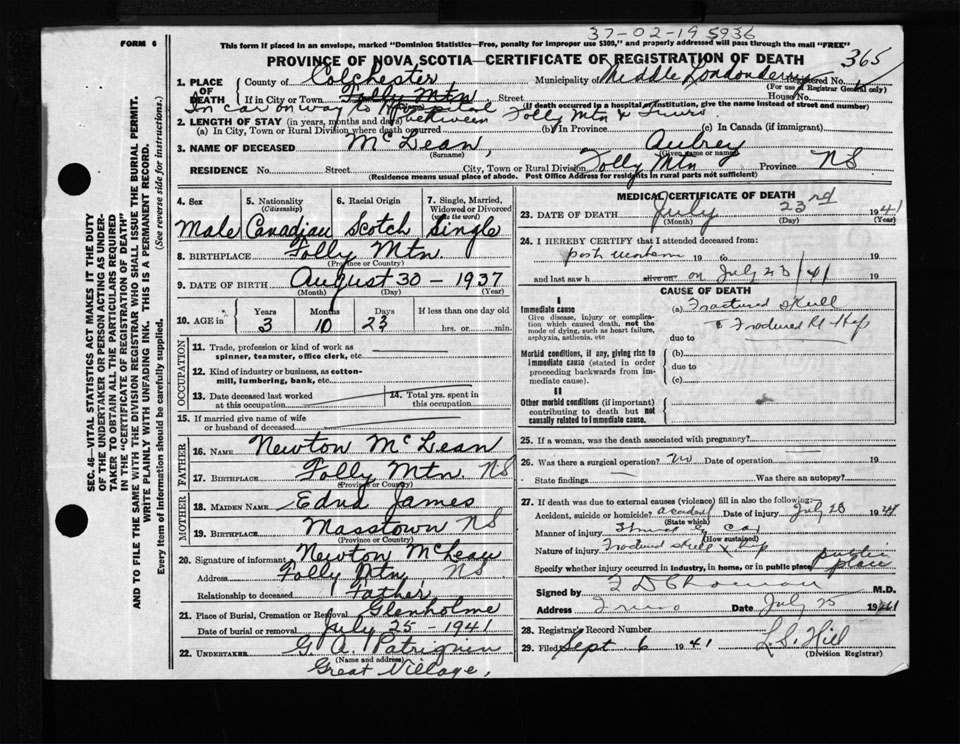 37-02-19 5936
FORM 6
This form if placed in an envelope, marked "Dominion Statistics—Free, penalty for improper use $300," and properly addressed will pass through the mail "FREE"
PROVINCE OF NOVA SCOTIA—CERTIFICATE OF REGISTRATION OF DEATH
365
1. PLACE OF DEATH County of Colchester Municipality of Middle Londonderry Registered No.
(For use of Registrar General only)
If in City or Town Folly Mtn Street House No.
In car on way to Hospital If death occurred in a hospital or institution, give the name instead of street and number)
between Folly Mtn & Truro
2. LENGTH OF STAY (in years, months and days)
(a) In City, Town or Rural Division where death occurred (b) In Province (c) In Canada (if immigrant)
3. NAME OF DECEASED McLean, Aubrey
(Surname) (Given name or names)
RESIDENCE No. Street City, Town or Rural Division Folly Mtn Province NS
(Residence means usual place of abode. Post Office Address for residents in rural parts not sufficient)
4. Sex 5. Nationality (Citizenship) 6. Racial Origin 7. Single, Married, Widowed or Divorced (write the word)
Male Canadian Scotch Single
8. BIRTHPLACE Folly Mtn.
(Province or Country)
9. DATE OF BIRTH August 30 - 1937
(Month) (Day) (Year)
10. AGE in Years Months Days If less than one day old
3 10 23 hrs. or min.
OCCUPATION
11. Trade, profession or kind of work as spinner, teamster, office clerk, etc.
12. Kind of industry or business, as cotton-mill, lumbering, bank, etc.
13. Date deceased last worked at this occupation 14. Total yrs. spent in this occupation
15. If married give name of wife or husband of deceased
FATHER
16. NAME Newton McLean
17. BIRTHPLACE Folly Mtn. NS
(Province or Country)
MOTHER
18. MAIDEN NAME Edna James
19. BIRTHPLACE Masstown NS
(Province or Country)
20. Signature of informant Newton McLean
Address Folly Mtn, NS.
Relationship to deceased Father
21. Place of Burial, Cremation or Removal Glenholme
Date of burial or removal July 25 - 1941
22. UNDERTAKER G. A. Patriquin
(Name and address)
Great Village,
MEDICAL CERTIFICATE OF DEATH
23. DATE OF DEATH July 23rd 1941
(Month) (Day) (Year)
24. I HEREBY CERTIFY that I attended deceased from:
post mortem 19 to 19
and last saw h alive on on July 23/41 19
CAUSE OF DEATH
I
Immediate cause
Give disease, injury or complication which caused death, not the mode of dying, such as heart failure, asphyxia, asthenia, etc
(a) Fractured Skull
Fractured Rt Hip
due to
Morbid conditions, if any, giving rise to immediate cause (stated in order proceeding backwards from immediate cause).
(b)
due to
(c)
II
Other morbid conditions (if important) contributing to death but not causally related to immediate cause.
25. If a woman, was the death associated with pregnancy?
26. Was there a surgical operation? No Date of operation 19
State findings Was there an autopsy?
27. If death was due to external causes (violence) fill in also the following:
Accident, suicide or homicide? Accident Date of injury July 23 1941
(State which)
Manner of injury Struck by Car
(How sustained)
Nature of injury Fractured skull & hip
Specify whether injury occurred in industry, in home, or in public place public place
Signed by M.D.
Address Truro Date July 25 1941
28. Registrar's Record Number
29. Filed Sept 6 1941 L.S. Hill
(Division Registrar)
SEC. 46—VITAL STATISTICS ACT MAKES IT THE DUTY
OF THE UNDERTAKER OR PERSON ACTING AS UNDER-
TAKER TO OBTAIN ALL THE PARTICULARS REQUIRED
IN THE "CERTIFICATE OF REGISTRATION OF DEATH"
AND TO FILE THE SAME WITH THE DIVISION REGISTRAR WHO SHALL ISSUE THE BURIAL PERMIT.
WRITE PLAINLY WITH UNFADING INK. THIS IS A PERMANENT RECORD.
Every item of information should be carefully supplied. (See reverse side for instructions.)